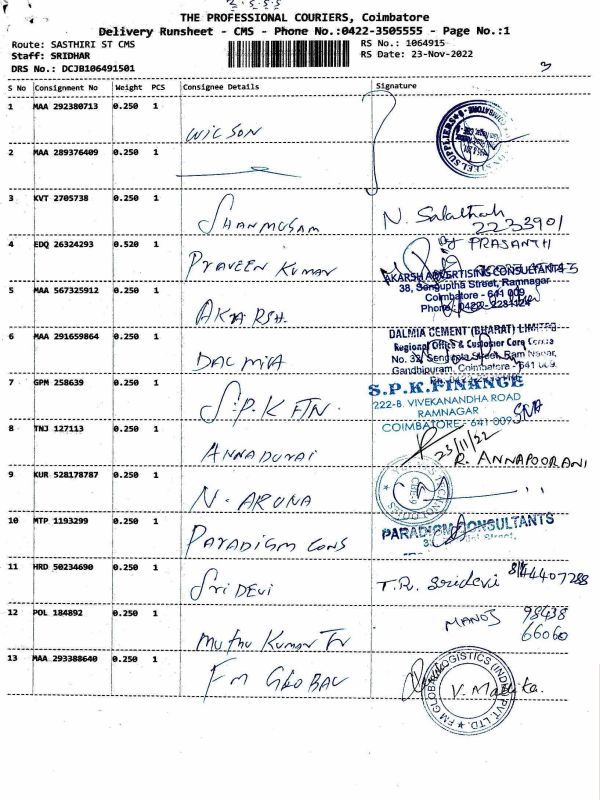 THE PROFESSIONAL COURIERS, Coimbatore
Delivery Runsheet - CMS - Phone No.:0422-3505555 - Page No.:1
Route: SASTHIRI ST CMS
RS No.: 1064915
Staff: SRIDHAR
RS Date: 23-Nov-2022
DRS No.: DCJB106491501
3
S No Consignment No Weight PCS Consignee Details Signature
1 MAA 292380713 0.250 1
WILSON
2 MAA 289376409 0.250 1
3 KVT 2705738 0.250 1
SHANMUGAM
N.
2233901
4 EDQ 26324293 0.520 1
PRAVEEN KUMAR
PRASANTH
5 MAA 567325912 0.250 1
AKARSH.
AKARSH ADVERTISING CONSULTANTS
38, Senguptha Street, Ramnagar
Coimbatore - 641 009
Phone: 0422 - 2231124
6 MAA 291659864 0.250 1
DALMIA
DALMIA CEMENT (BHARAT) LIMITED
Regional Office & Customer Care Centre
No. 33, Sengupta Street, Ram Nagar,
Gandhipuram, Coimbatore - 641 009.
7 GPM 258639 0.250 1
S.P.K FIN.
S.P.K.FINANCE
222-B. VIVEKANANDHA ROAD
RAMNAGAR
COIMBATORE - 641 009
8 TNJ 127113 0.250 1
ANNADURAI
23/11/22
R. ANNAPOORANI
9 KUR 528178787 0.250 1
N. ARUNA
10 MTP 1193299 0.250 1
PARADIGM CONS
PARADIGM CONSULTANTS
11 HRD 50234690 0.250 1
SRI DEVI
T.R. Sridevi
12 POL 184892 0.250 1
MUTHU KUMAR TN
MANOJ 98438
66060
13 MAA 293388640 0.250 1
FM GLOBAL
FM GLOBAL LOGISTICS (INDIA) PVT. LTD.
V. Mallika.